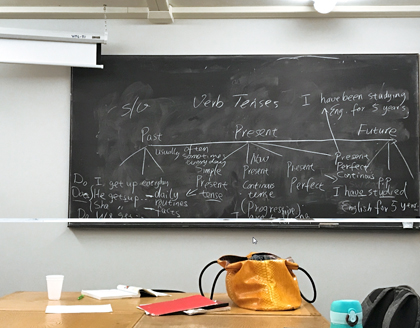 S/V Verb Tenses I have been studying
Eng. for 5 years.
Past Present Future
usually often
sometimes
every day
Simple
Present
tense
Now
Present
Continuous
tense
(Progressive)
Present
Perfect
Present
Perfect
Continuous
P.P
I have studied
English for 5 y
Do I get up
Does He get up
She
Do We
daily
routines
facts